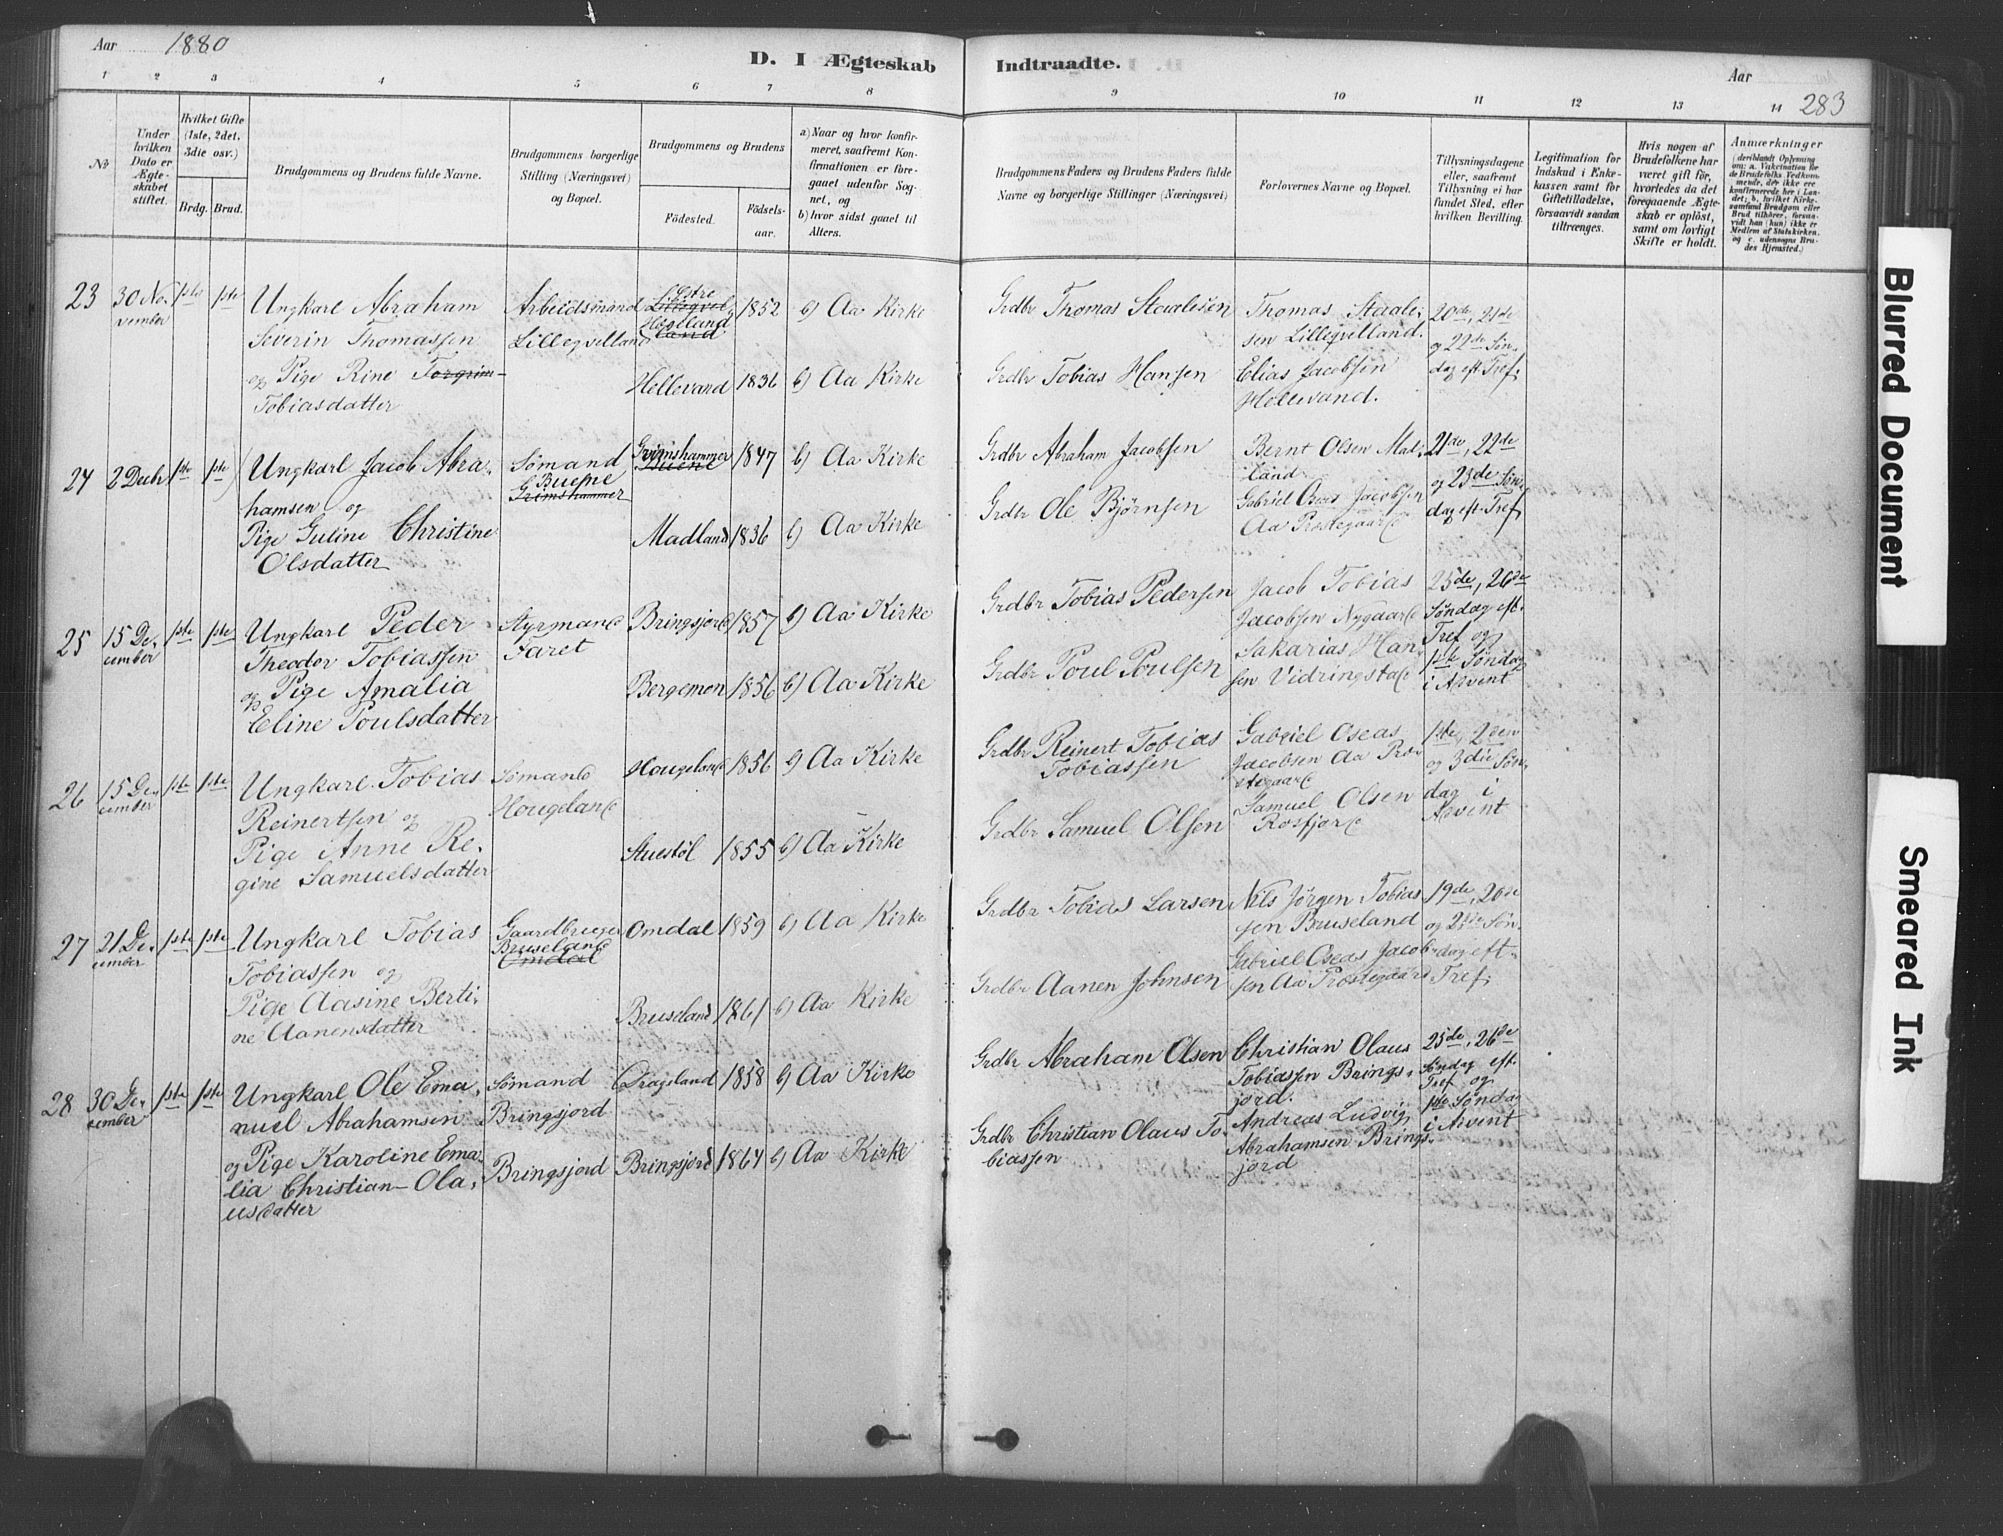 Aar 1880
D. I Ægteskab Indtraadte.
Aar
283
1 2 3 4 5 6 7 8 9 10 11 12 13 14
No
Under hvilken Dato er Ægteskabet stiftet.
Hvilket Gifte (1ste, 2det, 3die osv.)
Brdg. Brud.
Brudgommens og Brudens fulde Navne.
Brudgommens borgerlige Stilling (Næringsvei) og Bopæl.
Brudgommens og Brudens
Fødested.
Fødselsaar.
a) Naar og hvor konfirmeret, saafremt Konfirmationen er foregaaet udenfor Sognet, og
b) hvor sidst gaaet til Alters.
Brudgommens Faders og Brudens Faders fulde Navne og borgerlige Stillinger (Næringsvei)
Forlovernes Navne og Bopæl.
Tillysningsdagene eller, saafremt Tillysning ei har fundet Sted, efter hvilken Bevilling.
Legitimation for Indskud i Enkekassen samt for Giftetilladelse, forsaavidt saadan tiltrænges.
Hvis nogen af Brudefolkene har været gift før, hvorledes da det foregaaende Ægteskab er opløst, samt om lovligt Skifte er holdt.
Anmærkninger (deriblandt Oplysning om: a. Vakcination for de Brudefolks Vedkommende, der ikke ere konfirmerede her i Landet; b. hvilket Kirkesamfund Brudgom eller Brud tilhører, forsaavidt han (hun) ikke er Medlem af Statskirken, og c. udensogns Brudes Hjemsted.)
23 30 November 1ste 1ste
Ungkarl Abraham
Severin Thomassen
og Pige Rine Torgrim-
Tobiasdatter
Arbeidsmand
Lillegvelland
Østre
Høgelland
1852 b) Aa Kirke
Hellevand 1836 b) Aa Kirke
Grdbr Thomas Staalesen
Grdbr Tobias Hansen
Thomas Staale-
sen Lillegvelland.
Elias Jacobsen
Hellevand.
20de, 21de
og 22de Søn-
dag eft. Tref.
24 2 Decbr 1ste 1ste
Ungkarl Jacob Abra-
hamsen og
Pige Guline Christine
Olsdatter
Sømand
Buene
Grimshammer
Grimshammer
Buene
1847 b) Aa Kirke
Madland 1836 b) Aa Kirke
Grdbr Abraham Jacobsen
Grdbr Ole Bjørnsen
Bernt Olsen Mad-
land
Gabriel Oseas Jacobsen
Aa Prostegaard
21de, 22de
og 23de Søn-
dag eft. Tref.
25 15 December 1ste 1ste
Ungkarl Peder
Theodor Tobiassen
og Pige Amalia
Eline Poulsdatter
Styrmand
Faret
Bringsjord 1857 b) Aa Kirke
Bergemon 1856 b) Aa Kirke
Grdbr Tobias Pedersen
Grdbr Poul Poulsen
Jacob Tobias
Jacobsen Nygaard
Sakarias Han-
sen Vidringstad
25de, 26de
Søndag eft.
Tref og
1ste Søndag
i Advent
26 15 December 1ste 1ste
Ungkarl Tobias
Reinertsen og
Pige Anne Re-
gine Samuelsdatter
Sømand
Hougeland
Hougeland 1856 b) Aa Kirke
Stuestøl 1855 b) Aa Kirke
Grdbr Reinert Tobias
Tobiassen
Grdbr Samuel Olsen
Gabriel Oseas
Jacobsen Aa Pro-
stegaard
Samuel Olsen
Rosfjord
1ste, 2den
og 3die Søn-
dag i
Advent
27 21 December 1ste 1ste
Ungkarl Tobias
Tobiassen og
Pige Aasine Berti-
ne Aanensdatter
Gaardbruger
Bruseland
Omdal
Omdal 1859 b) Aa Kirke
Bruseland 1861 b) Aa Kirke
Grdbr Tobias Larsen
Grdbr Aanen Johnsen
Nils Jørgen Tobias-
sen Bruseland
Gabriel Oseas Jacob-
sen Aa Prostegaard
19de, 20de
og 21de Søn-
dag eft.
Tref.
28 30 December 1ste 1ste
Ungkarl Ole Ema-
nuel Abrahamsen
og Pige Karoline Ema-
lia Christian-Ola-
usdatter
Sømand
Bringsjord
Bringsjord
Dragland 1858 b) Aa Kirke
Bringsjord 1864 b) Aa Kirke
Grdbr Abraham Olsen
Grdbr Christian Olaus To-
biassen
Christian Olaus
Tobiassen Brings-
jord.
Andreas Ludvig
Abrahamsen Brings-
jord
25de, 26de
Søndag eft.
Tref og
1ste Søndag
i Advent
Blurred Document
Smeared Ink